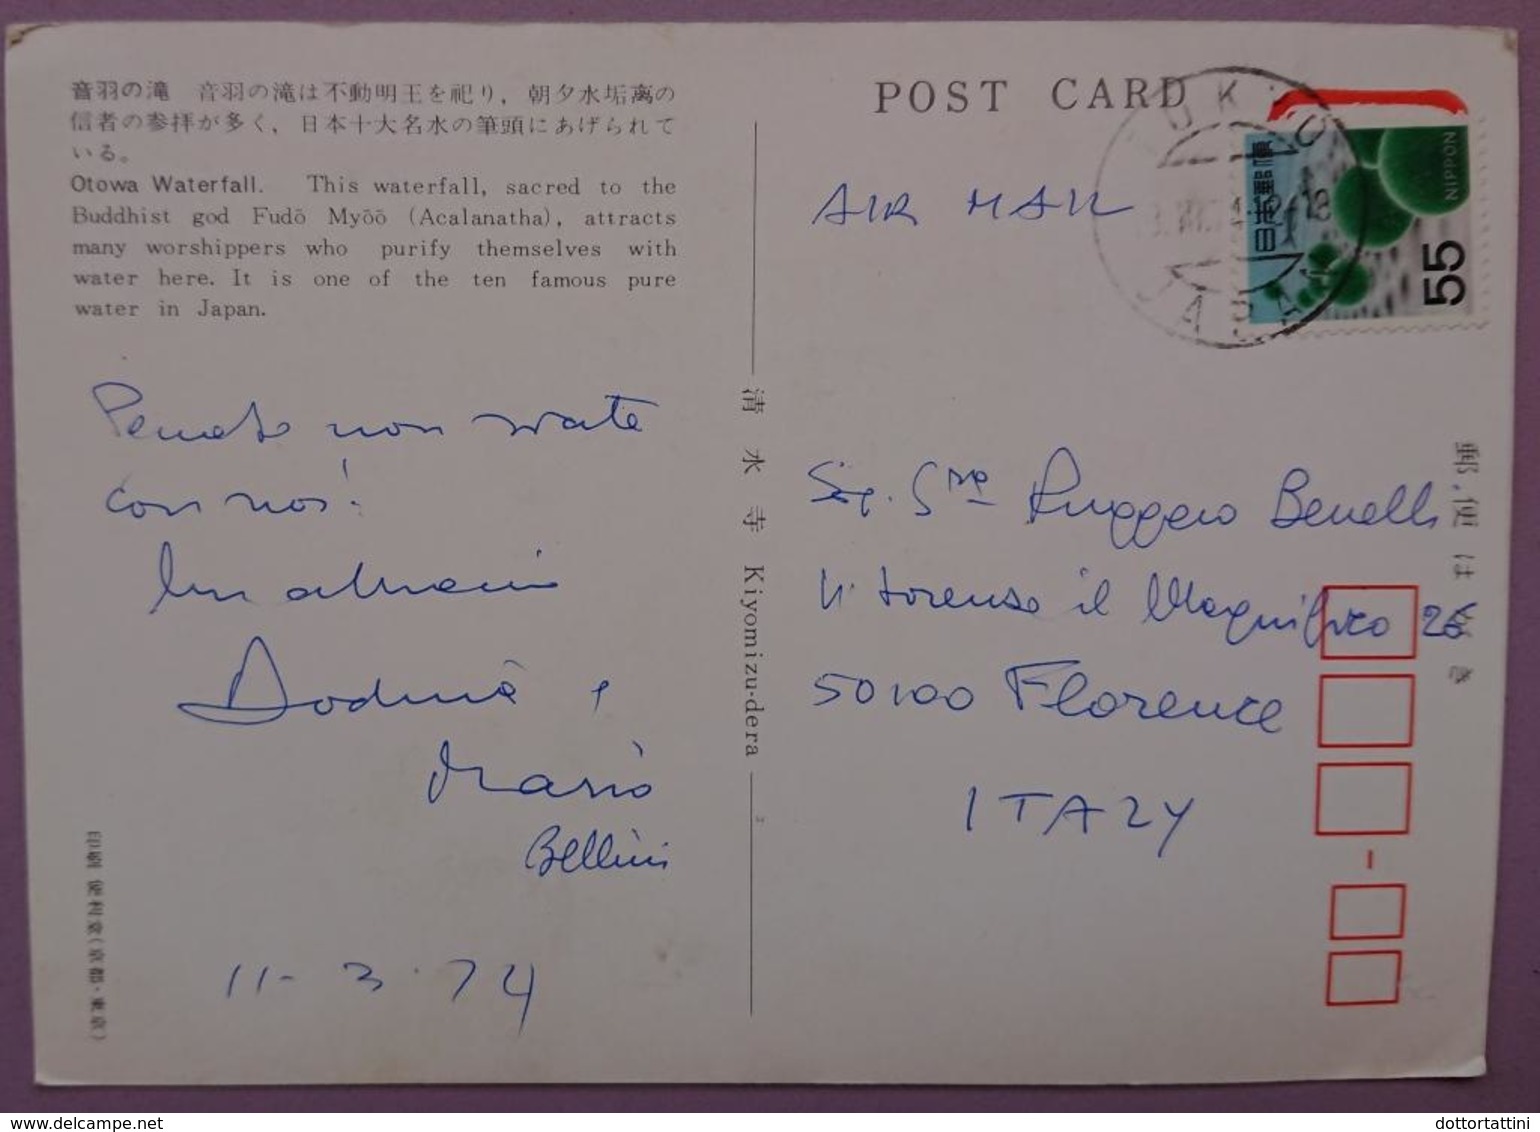 音羽の滝　音羽の滝は不動明王を祀り，朝夕水垢離の
信者の参拝が多く，日本十大名水の筆頭にあげられて
いる。
Otowa Waterfall. This waterfall, sacred to the
Buddhist god Fudō Myōō (Acalanatha), attracts
many worshippers who purify themselves with
water here. It is one of the ten famous pure
water in Japan.
non
con noi!
Mario
Bellini
11-3.74
印刷 便利堂(京都・東京)
清水寺 Kiyomizu-dera
POST CARD
AIR MAIL
JAPAN
日本郵便
NIPPON
55
Sig. Sra Ruggero Benelli
Lorenzo il Magnifico 26
50100 Florence
ITALY
郵便はがき
dottortattini